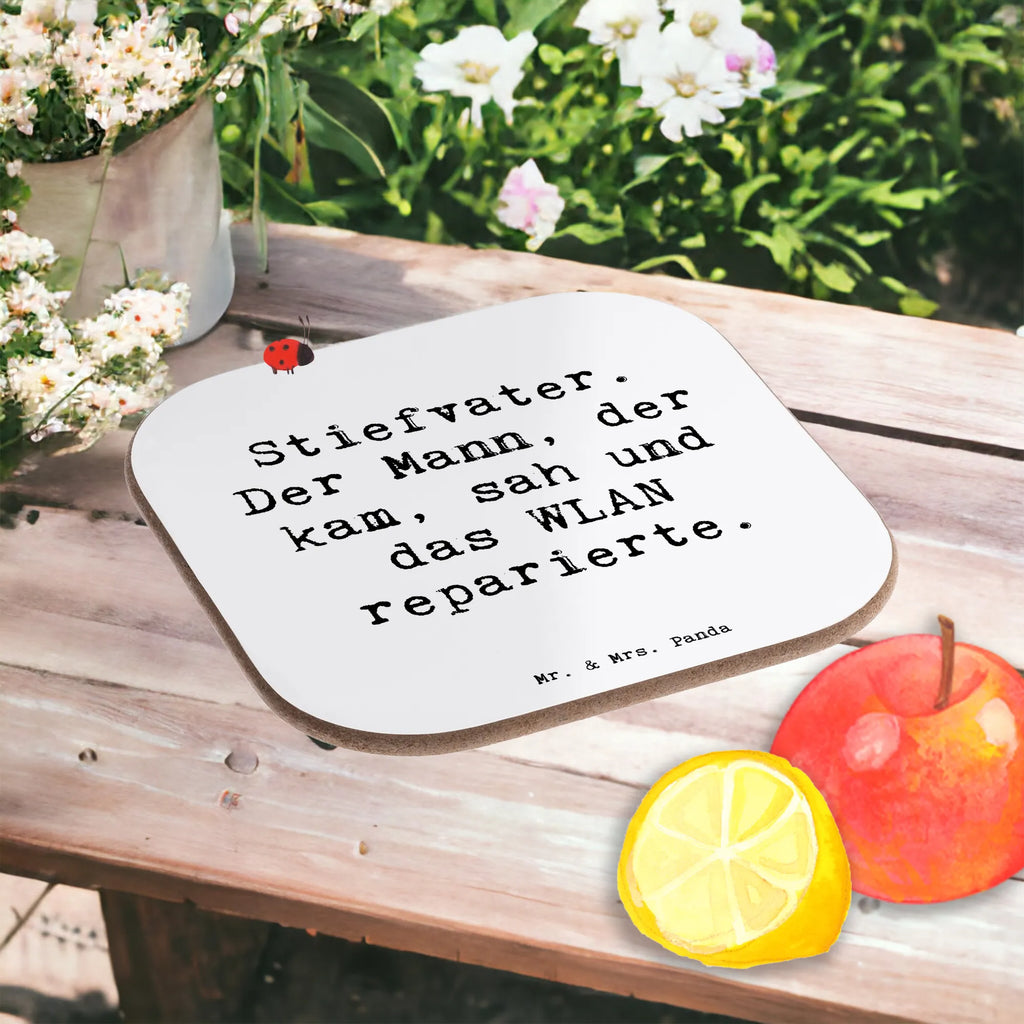 Stiefvater.
Der Mann, der
kam, sah und
das WLAN
reparierte.
Mr. & Mrs. Panda